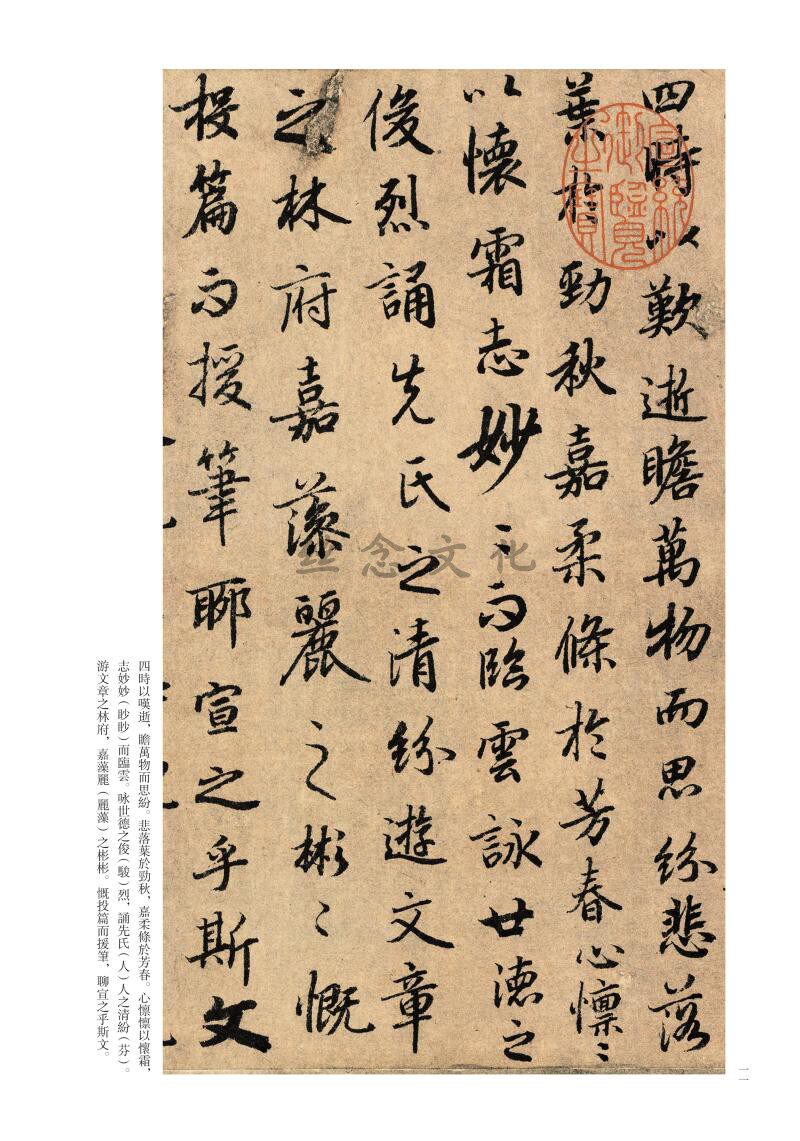 四時以歎逝瞻萬物而思紛悲落
葉於勁秋嘉柔條於芳春心懍〻
以懷霜志妙〻而臨雲詠世德之
俊烈誦先氏之清紛遊文章
之林府嘉藻麗之彬〻慨
投篇而援筆聊宣之乎斯文
宣統御覽之寶
四時以嘆逝，瞻萬物而思紛。悲落葉於勁秋，嘉柔條於芳春。心懍懍以懷霜，
志妙妙（眇眇）而臨雲。咏世德之俊（駿）烈，誦先氏（人）人之清紛（芬）。
游文章之林府，嘉藻麗（麗藻）之彬彬。慨投篇而援筆，聊宣之乎斯文。
一一
念文化